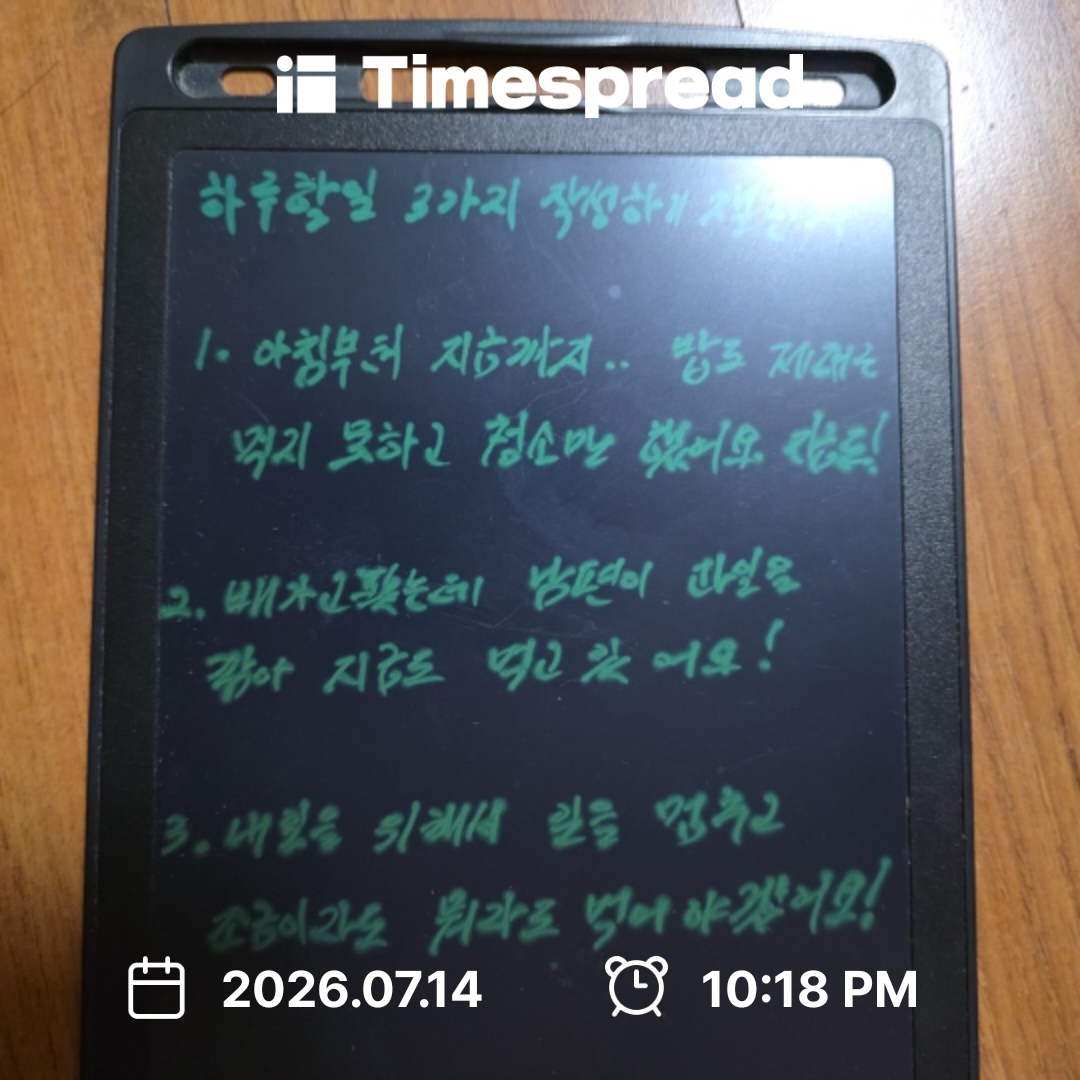 Timespread
하루할일 3가지 작성하기
1. 아침부터 지금까지.. 밥도 제대로
먹지 못하고 청소만 했어요
2. 배가고팠는데 남편이 과일을
깎아 지금도 먹고 있어요!
3. 내일을 위해서 일을 멈추고
조금이라도 뭐라도 먹어야겠어요!
2026.07.14 10:18 PM